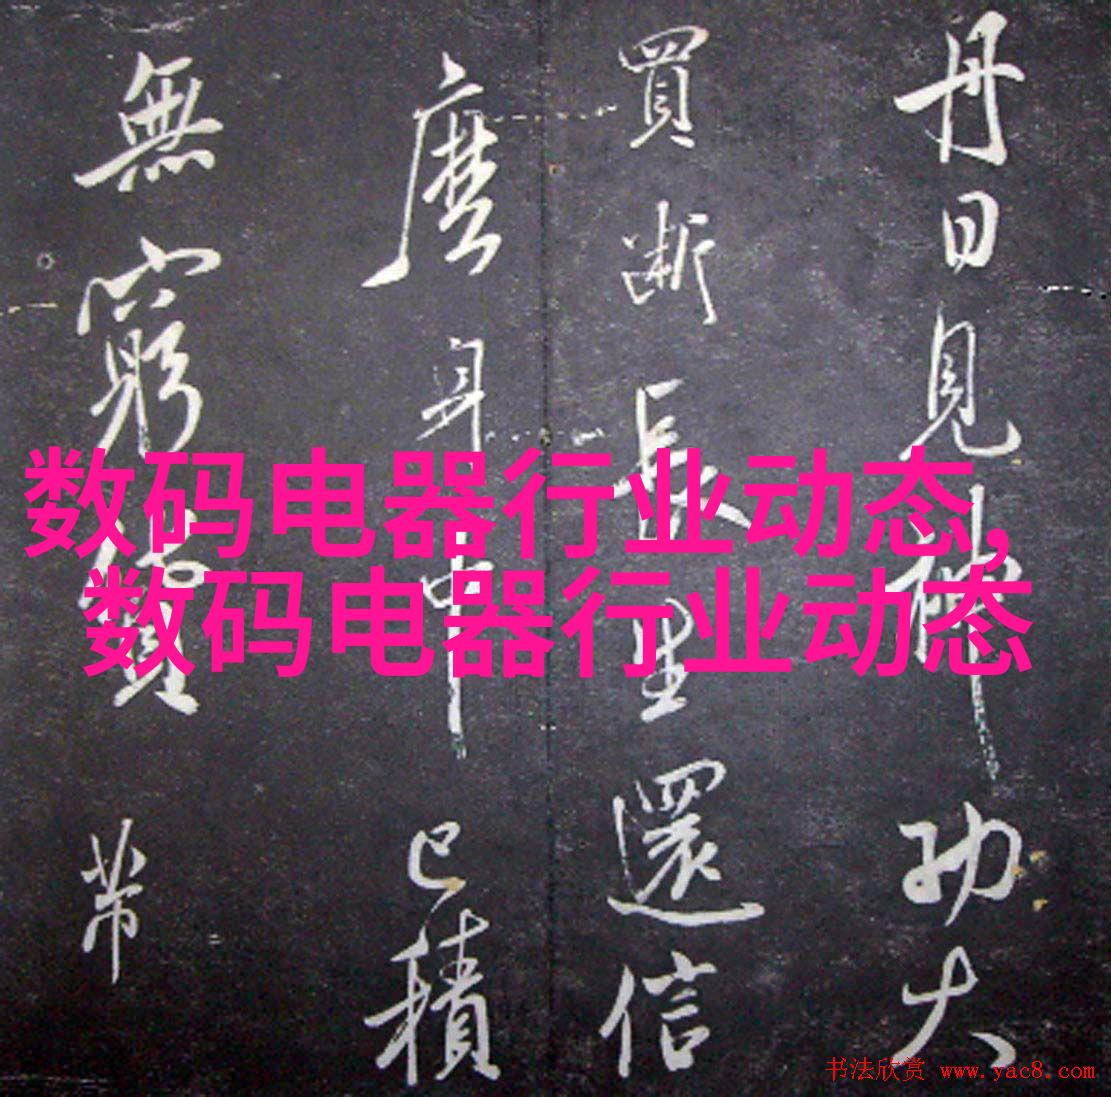 丹日見神功大
買断長生還信
麼身中已積
無窮
芾
数码电器行业动态,
数码电器行业动态
书法欣赏 www.yac8.com